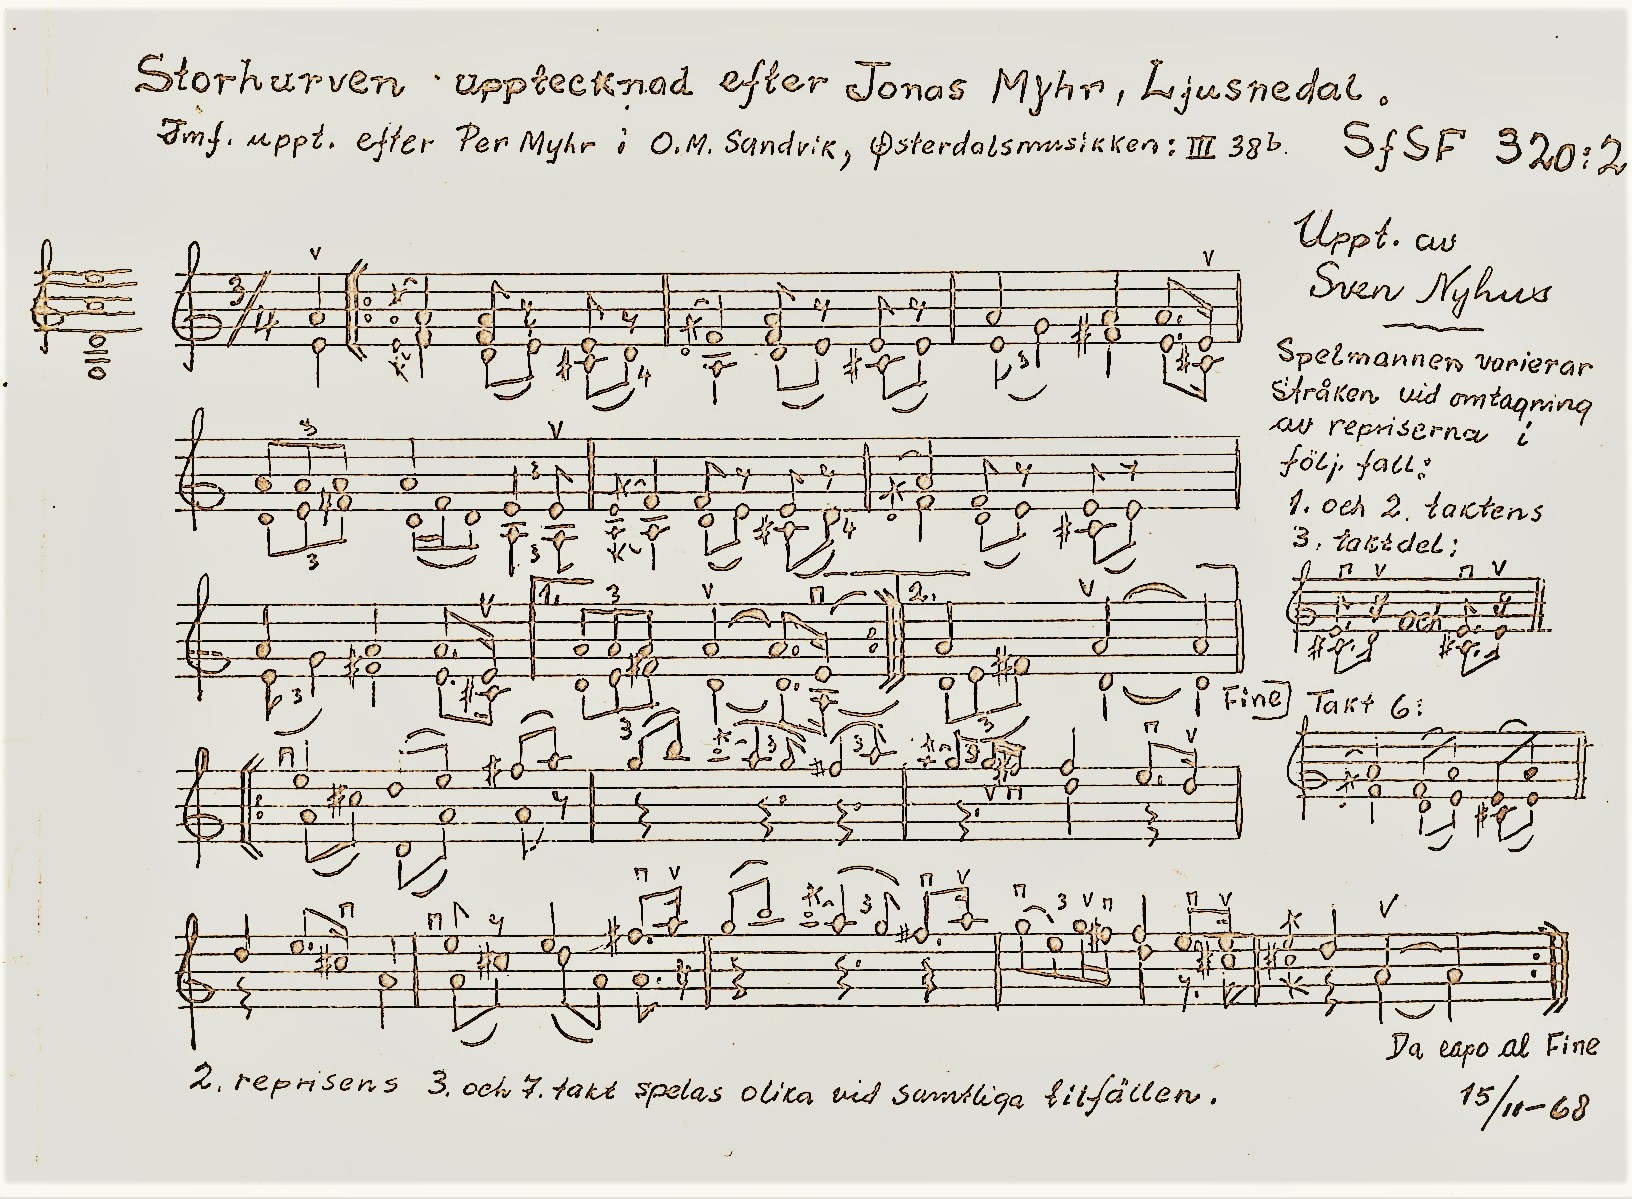 Storhurven · upptecknad efter Jonas Myhr, Ljusnedal.
Jmf. uppt. efter Per Myhr i O.M. Sandvik, Østerdalsmusikken: III 38b.
SfSF 320:2
Uppt. av
Sven Nyhus
3/4
Spelmannen varierar
stråken vid omtagning
av repriserna i
följ. fall:
1. och 2. taktens
3. taktdel:
och
1.
2.
Fine
Takt 6:
Da capo al Fine
2. reprisens 3. och 7. takt spelas olika vid samtliga tilfällen.
15/11-68